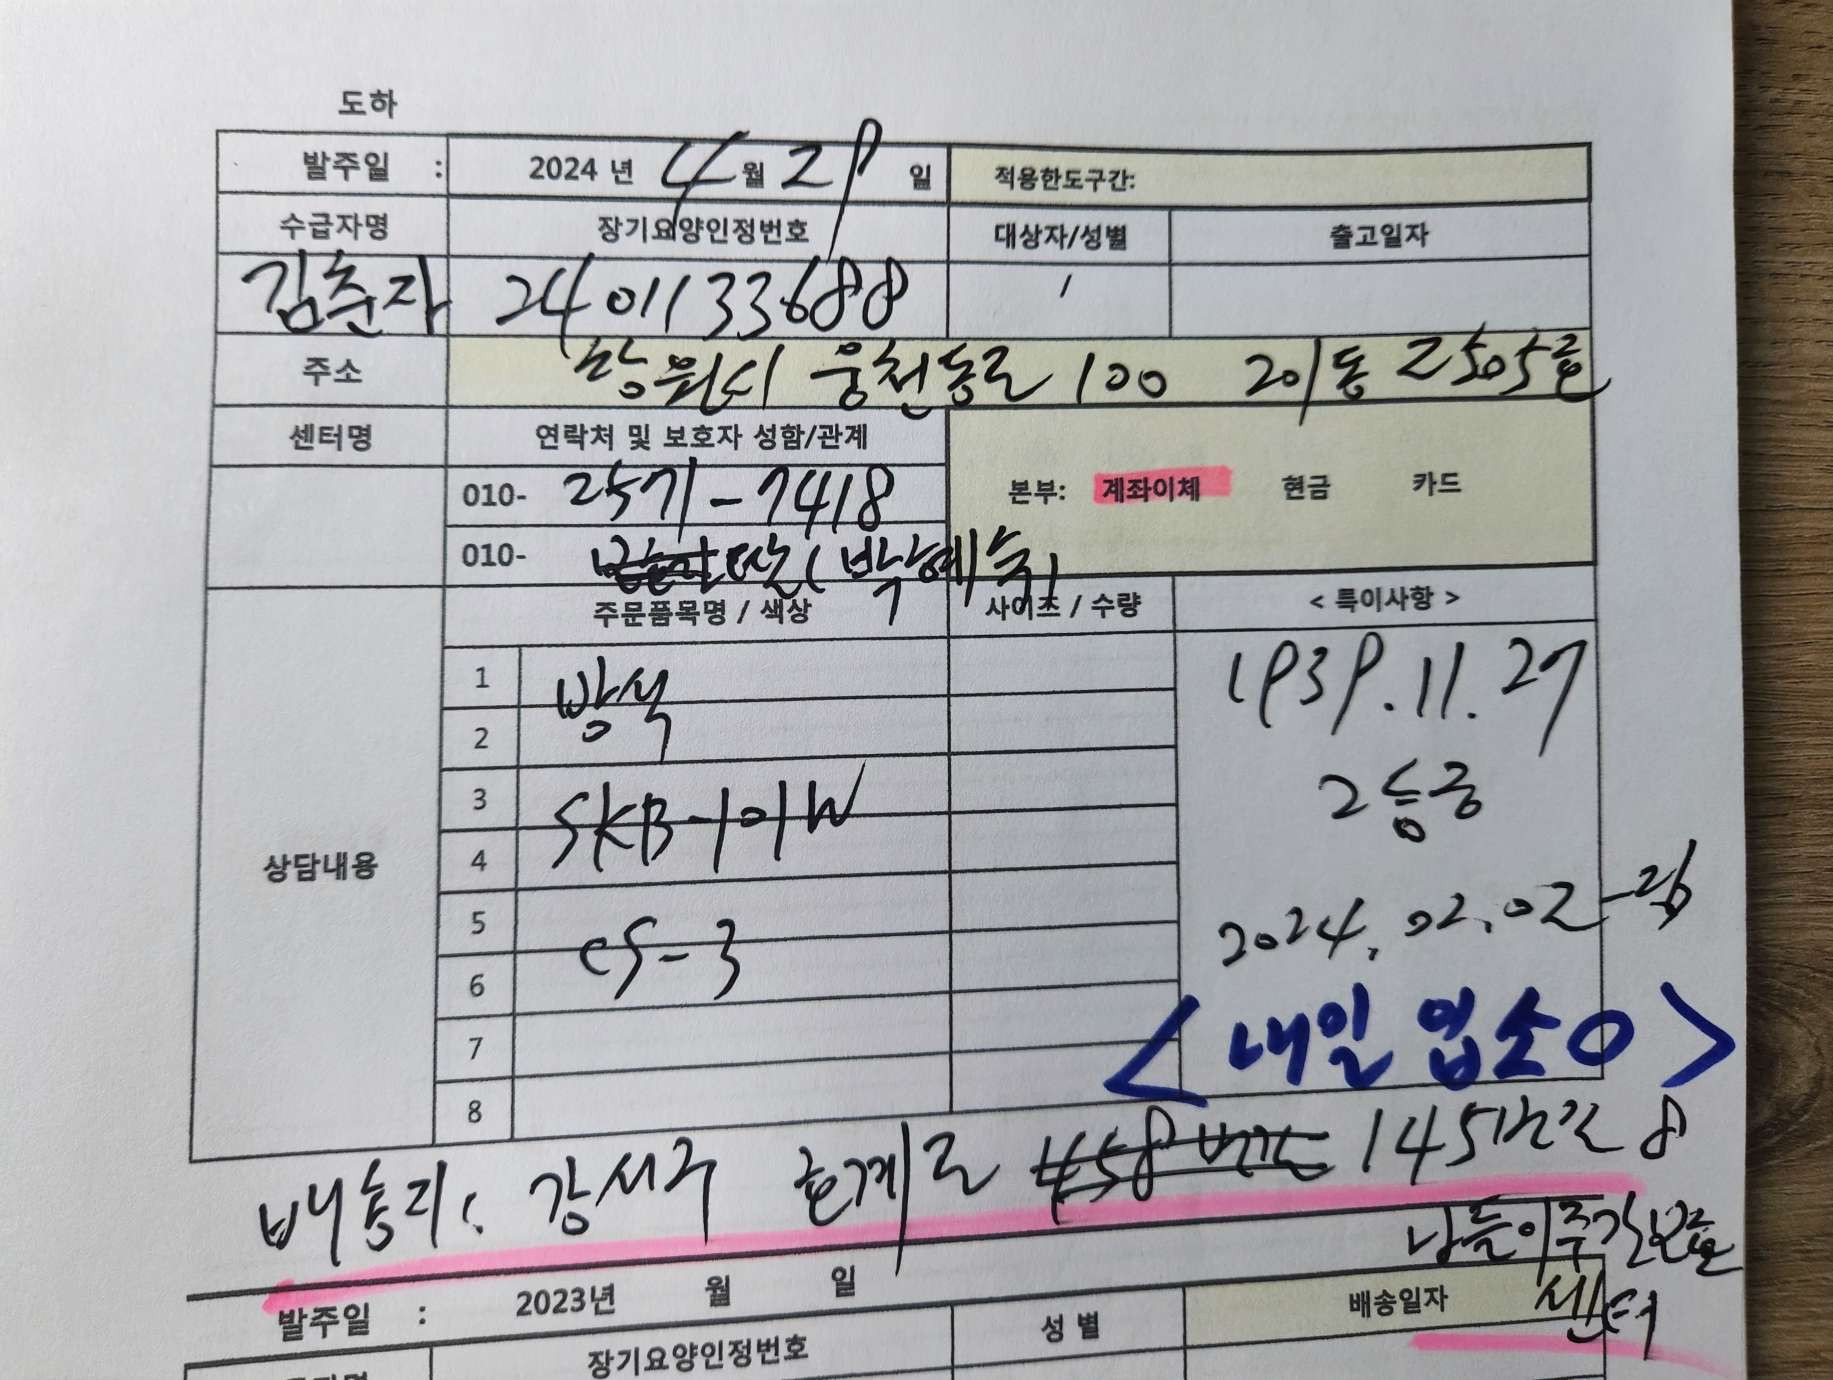 도하
발주일 : 2024 년 4월 29 일 적용한도구간:
수급자명 장기요양인정번호 대상자/성별 출고일자
김춘자 2401133688 /
주소 창원시 웅천동로 100 201동 2505호
센터명 연락처 및 보호자 성함/관계
010- 2571-7418 본부: 계좌이체 현금 카드
010- 딸(박혜숙)
주문품목명 / 색상 사이즈 / 수량 < 특이사항 >
상담내용
1 방석
2
3 SKB-101W
4
5 CS-3
6
7
8
1939.11.27
2등급
2024.02.02-26
<내일 업소O>
배송지: 강서구 호계로 145번길 8
나들이주간보호
센터
발주일 : 2023년 월 일
장기요양인정번호 성 별 배송일자